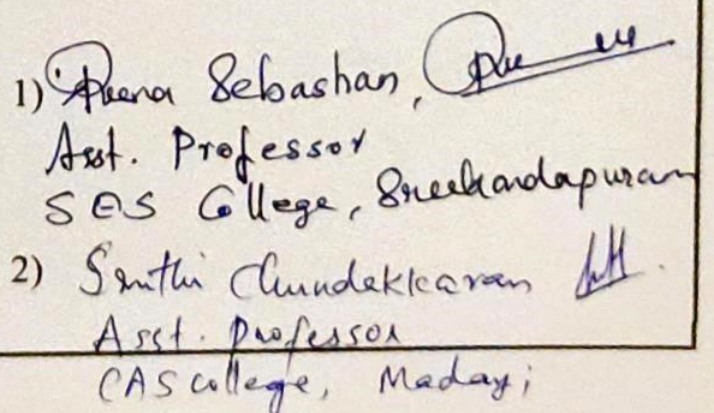 1) Sebastian,
Asst. Professor
SES College, Sreekandapuram
2) Smithi Chundakkaran
Asst. Professor
CAS College, Madayi